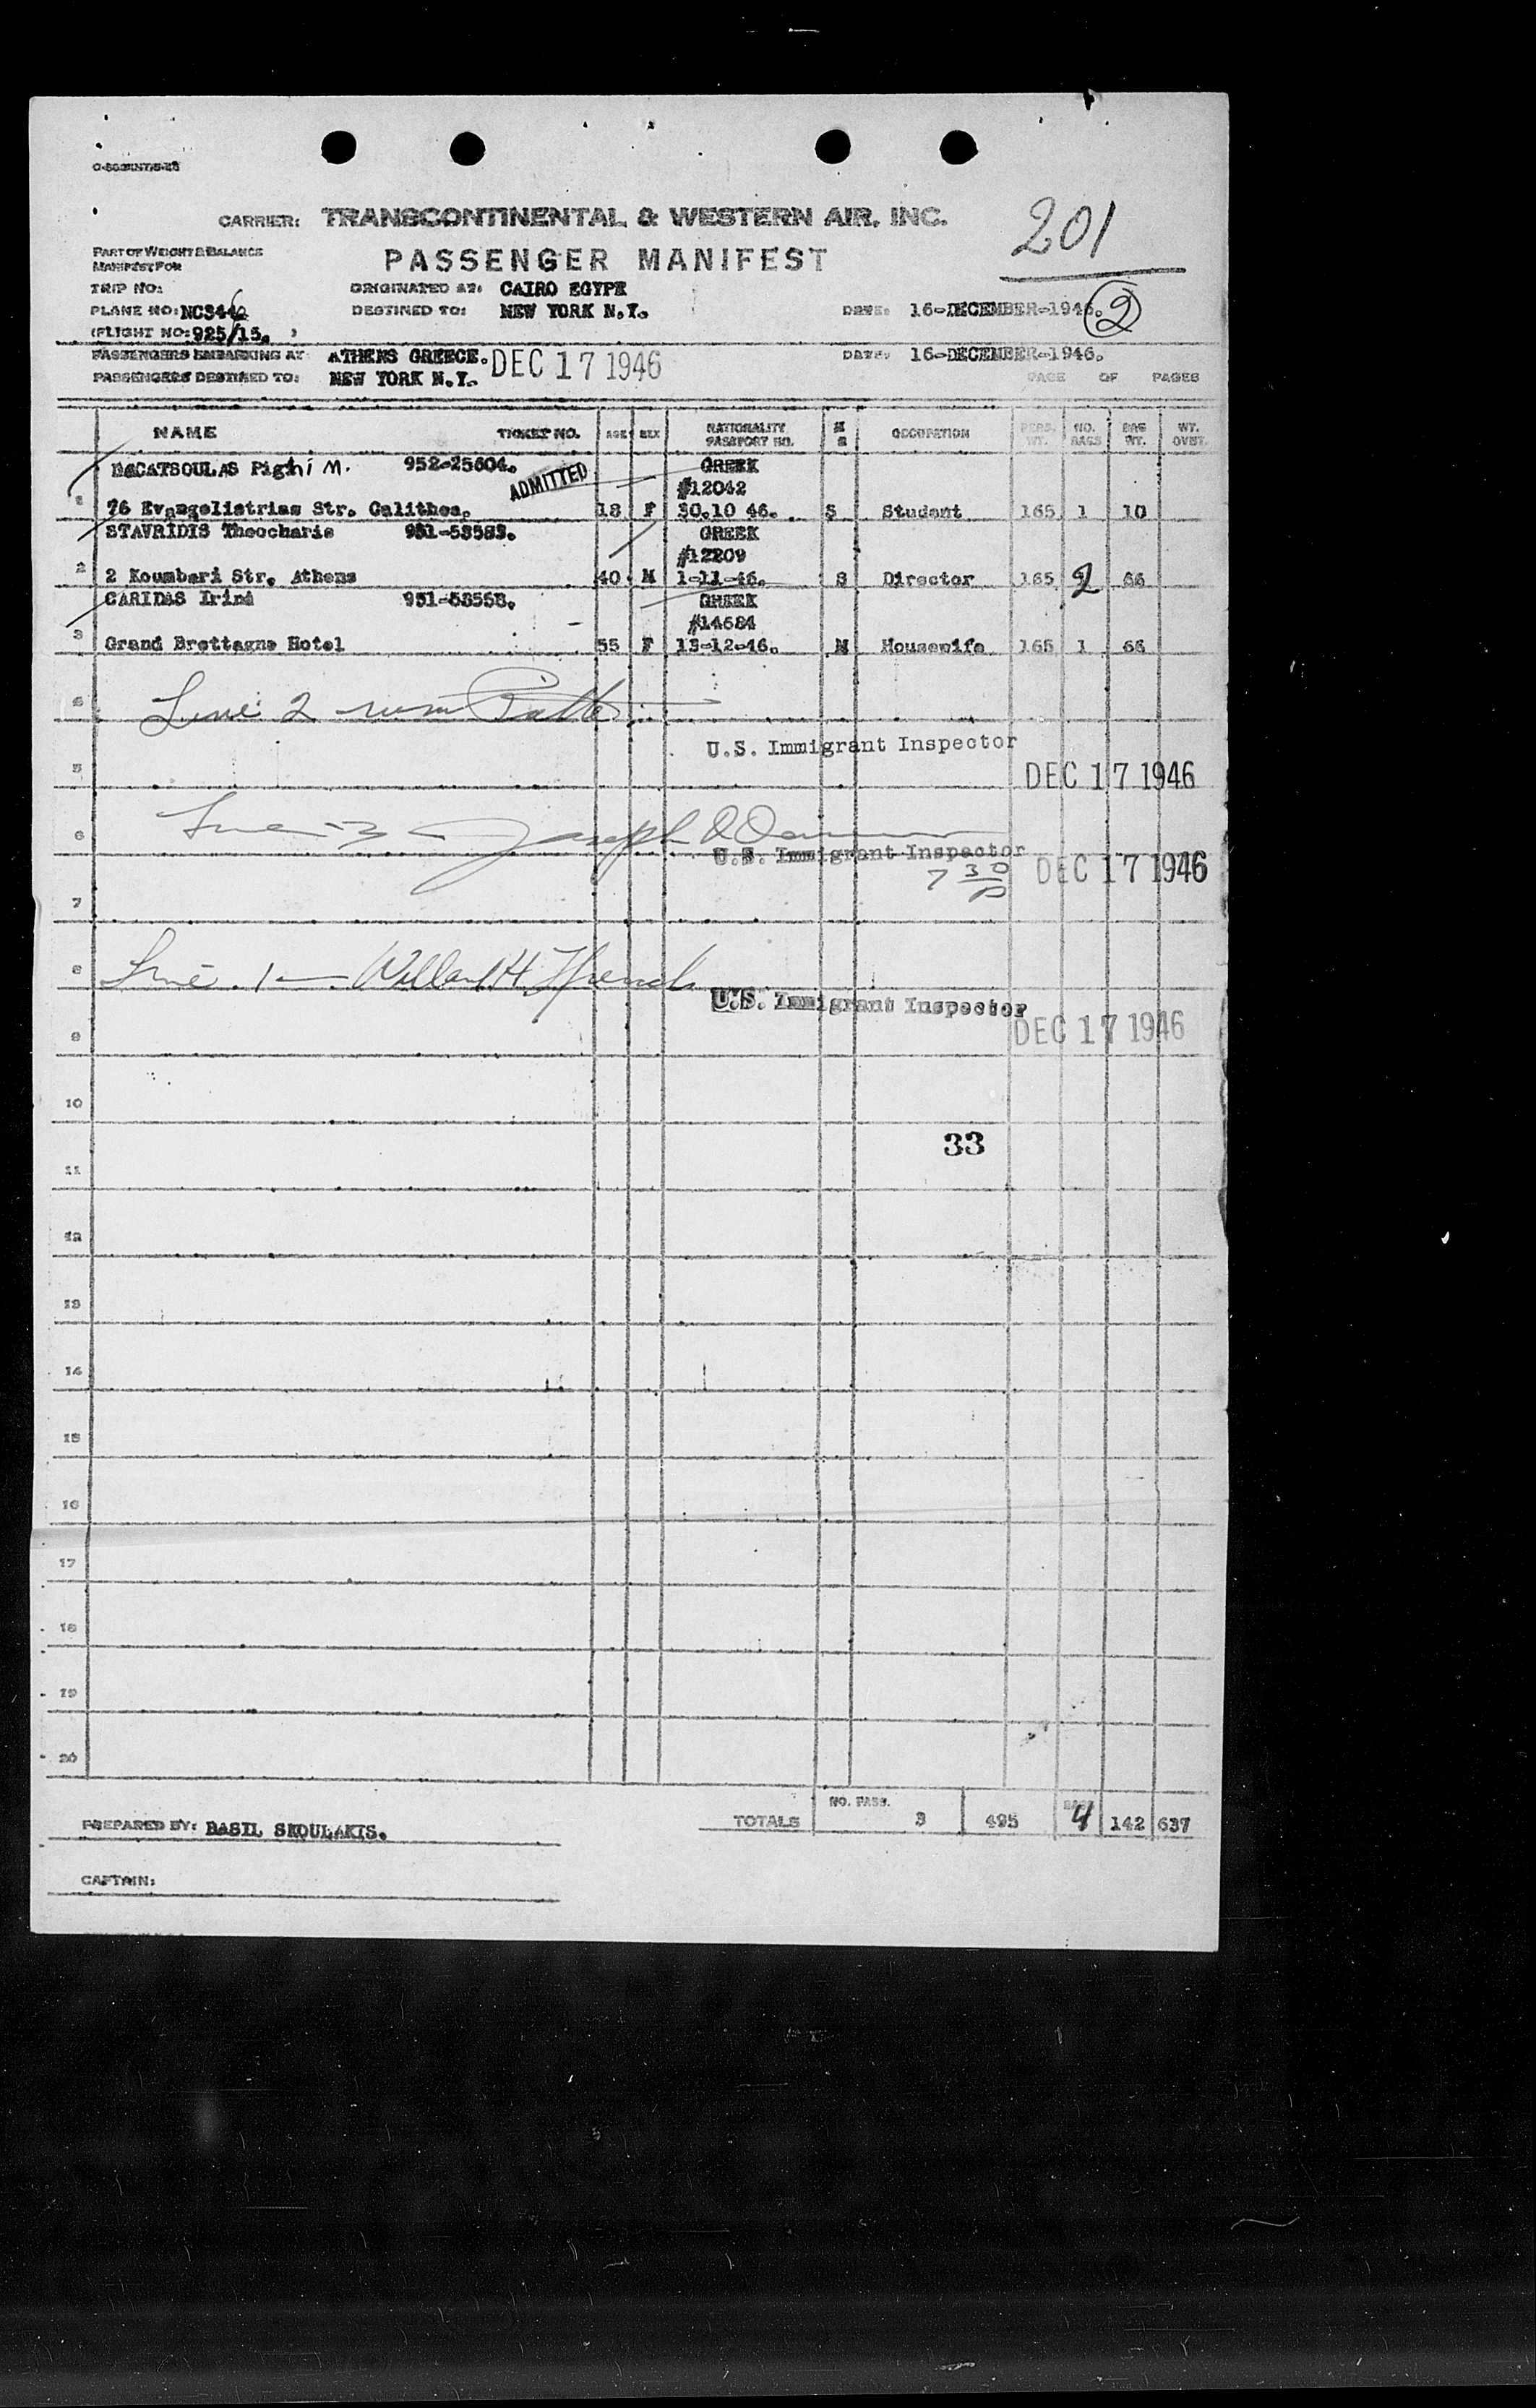 CARRIER: TRANSCONTINENTAL & WESTERN AIR, INC.
201
PART OF WEIGHT & BALANCE
MANIFEST FOR
PASSENGER MANIFEST
TRIP NO:
ORIGINATED AT: CAIRO EGYPT
PLANE NO: NC344
DESTINED TO: NEW YORK N.Y.
DATE: 16-DECEMBER-1946.
2
(FLIGHT NO: 925/15. )
PASSENGERS EMBARKING AT: ATHENS GREECE. DEC 17 1946
DATE: 16-DECEMBER-1946.
PASSENGERS DESTINED TO: NEW YORK N.Y.
PAGE OF PAGES
NAME TICKET NO. AGE SEX NATIONALITY PASSPORT NO. M S OCCUPATION PERS. WT. NO. BAGS BAG WT. WT. OVBT.
BACATSOULAS Pighi M. 952-25604. ADMITTED GREEK
#12042
1 76 Evangelistrias Str. Calithea. 18 F 30.10 46. S Student 165 1 10
STAVRIDIS Theocharis 951-53553. GREEK
#12209
2 2 Koumbari Str. Athens 40 M 1-11-46. S Director 165 2 66
CARIDAS Irini 951-53558. GREEK
#14684
3 Grand Brettagne Hotel 55 F 13-12-46. M Housewife 165 1 66
4 Line 2
U.S. Immigrant Inspector
5 DEC 17 1946
6 Line 3 Joseph
U.S. Immigrant Inspector DEC 17 1946
7 30
P
7
8 Line 1 Willard H. French
U.S. Immigrant Inspector
DEC 17 1946
9
10
33
11
12
13
14
15
16
17
18
19
20
PREPARED BY: BASIL SKOULAKIS.
TOTALS NO. PASS. 3 495 BAGS 4 142 637
CAPTAIN: